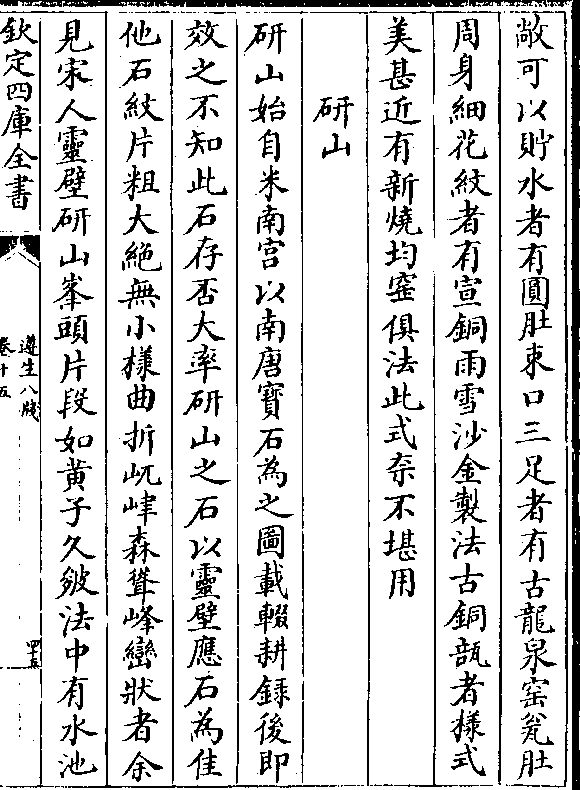 敞可以貯水者有圓肚束口三足者有古龍泉窑瓮肚
周身細花紋者有宣銅雨雪沙金製法古銅瓿者樣式
美甚近有新燒均窑俱法此式柰不堪用
研山
研山始自米南宫以南唐寶石為之圖載輟耕録後即
效之不知此石存否大率研山之石以靈壁應石為佳
他石紋片粗大絶無小樣曲折屼嵂森聳峰巒狀者余
見宋人靈壁研山峯頭片段如黄子久皴法中有水池
欽定四庫全書
遵生八牋
卷十五
四十五